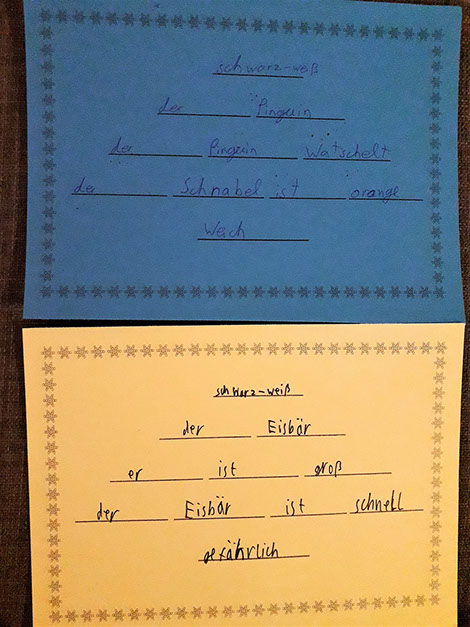 schwarz-weiß
der Pinguin
der Pinguin Watschelt
der Schnabel ist orange
Weich
schwarz-weiß
der Eisbär
er ist groß
der Eisbär ist schnell
gefährlich